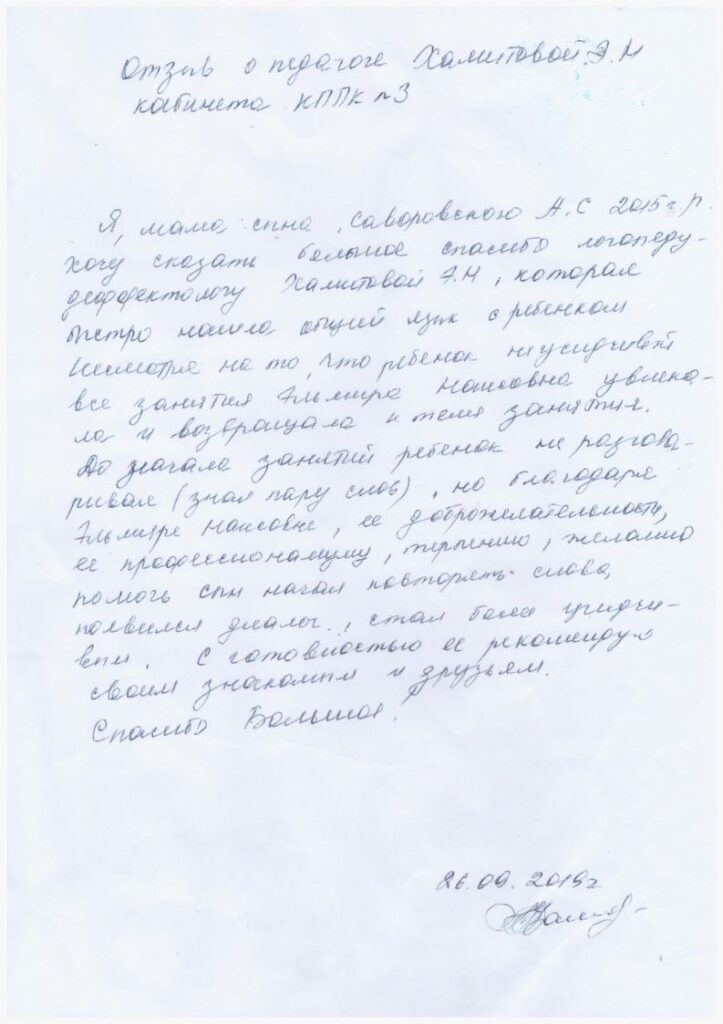 Отзыв о педагоге Халитовой Э.Н
кабинета КППК п3
Я, мама сына, Саворовского А.С 2015г.р.
хочу сказать большое спасибо логопеду-
дефектологу Халитовой Э.Н, которая
быстро нашла общий язык с ребенком
Несмотря на то, что ребенок неусидчивый
все занятия Эльмира Наисовна увлека-
ла и возвращала к теме занятия.
До начала занятий ребенок не разгова-
ривал (знал пару слов), но благодаря
Эльмире Наисовне, ее доброжелательности,
ее профессионализму, терпению, желанию
помочь сын начал повторять слова,
появился диалог, стал более усидчи-
вым. С готовностью ее рекомендую
своим знакомым и друзьям.
Спасибо Большое!
26.09.2019г